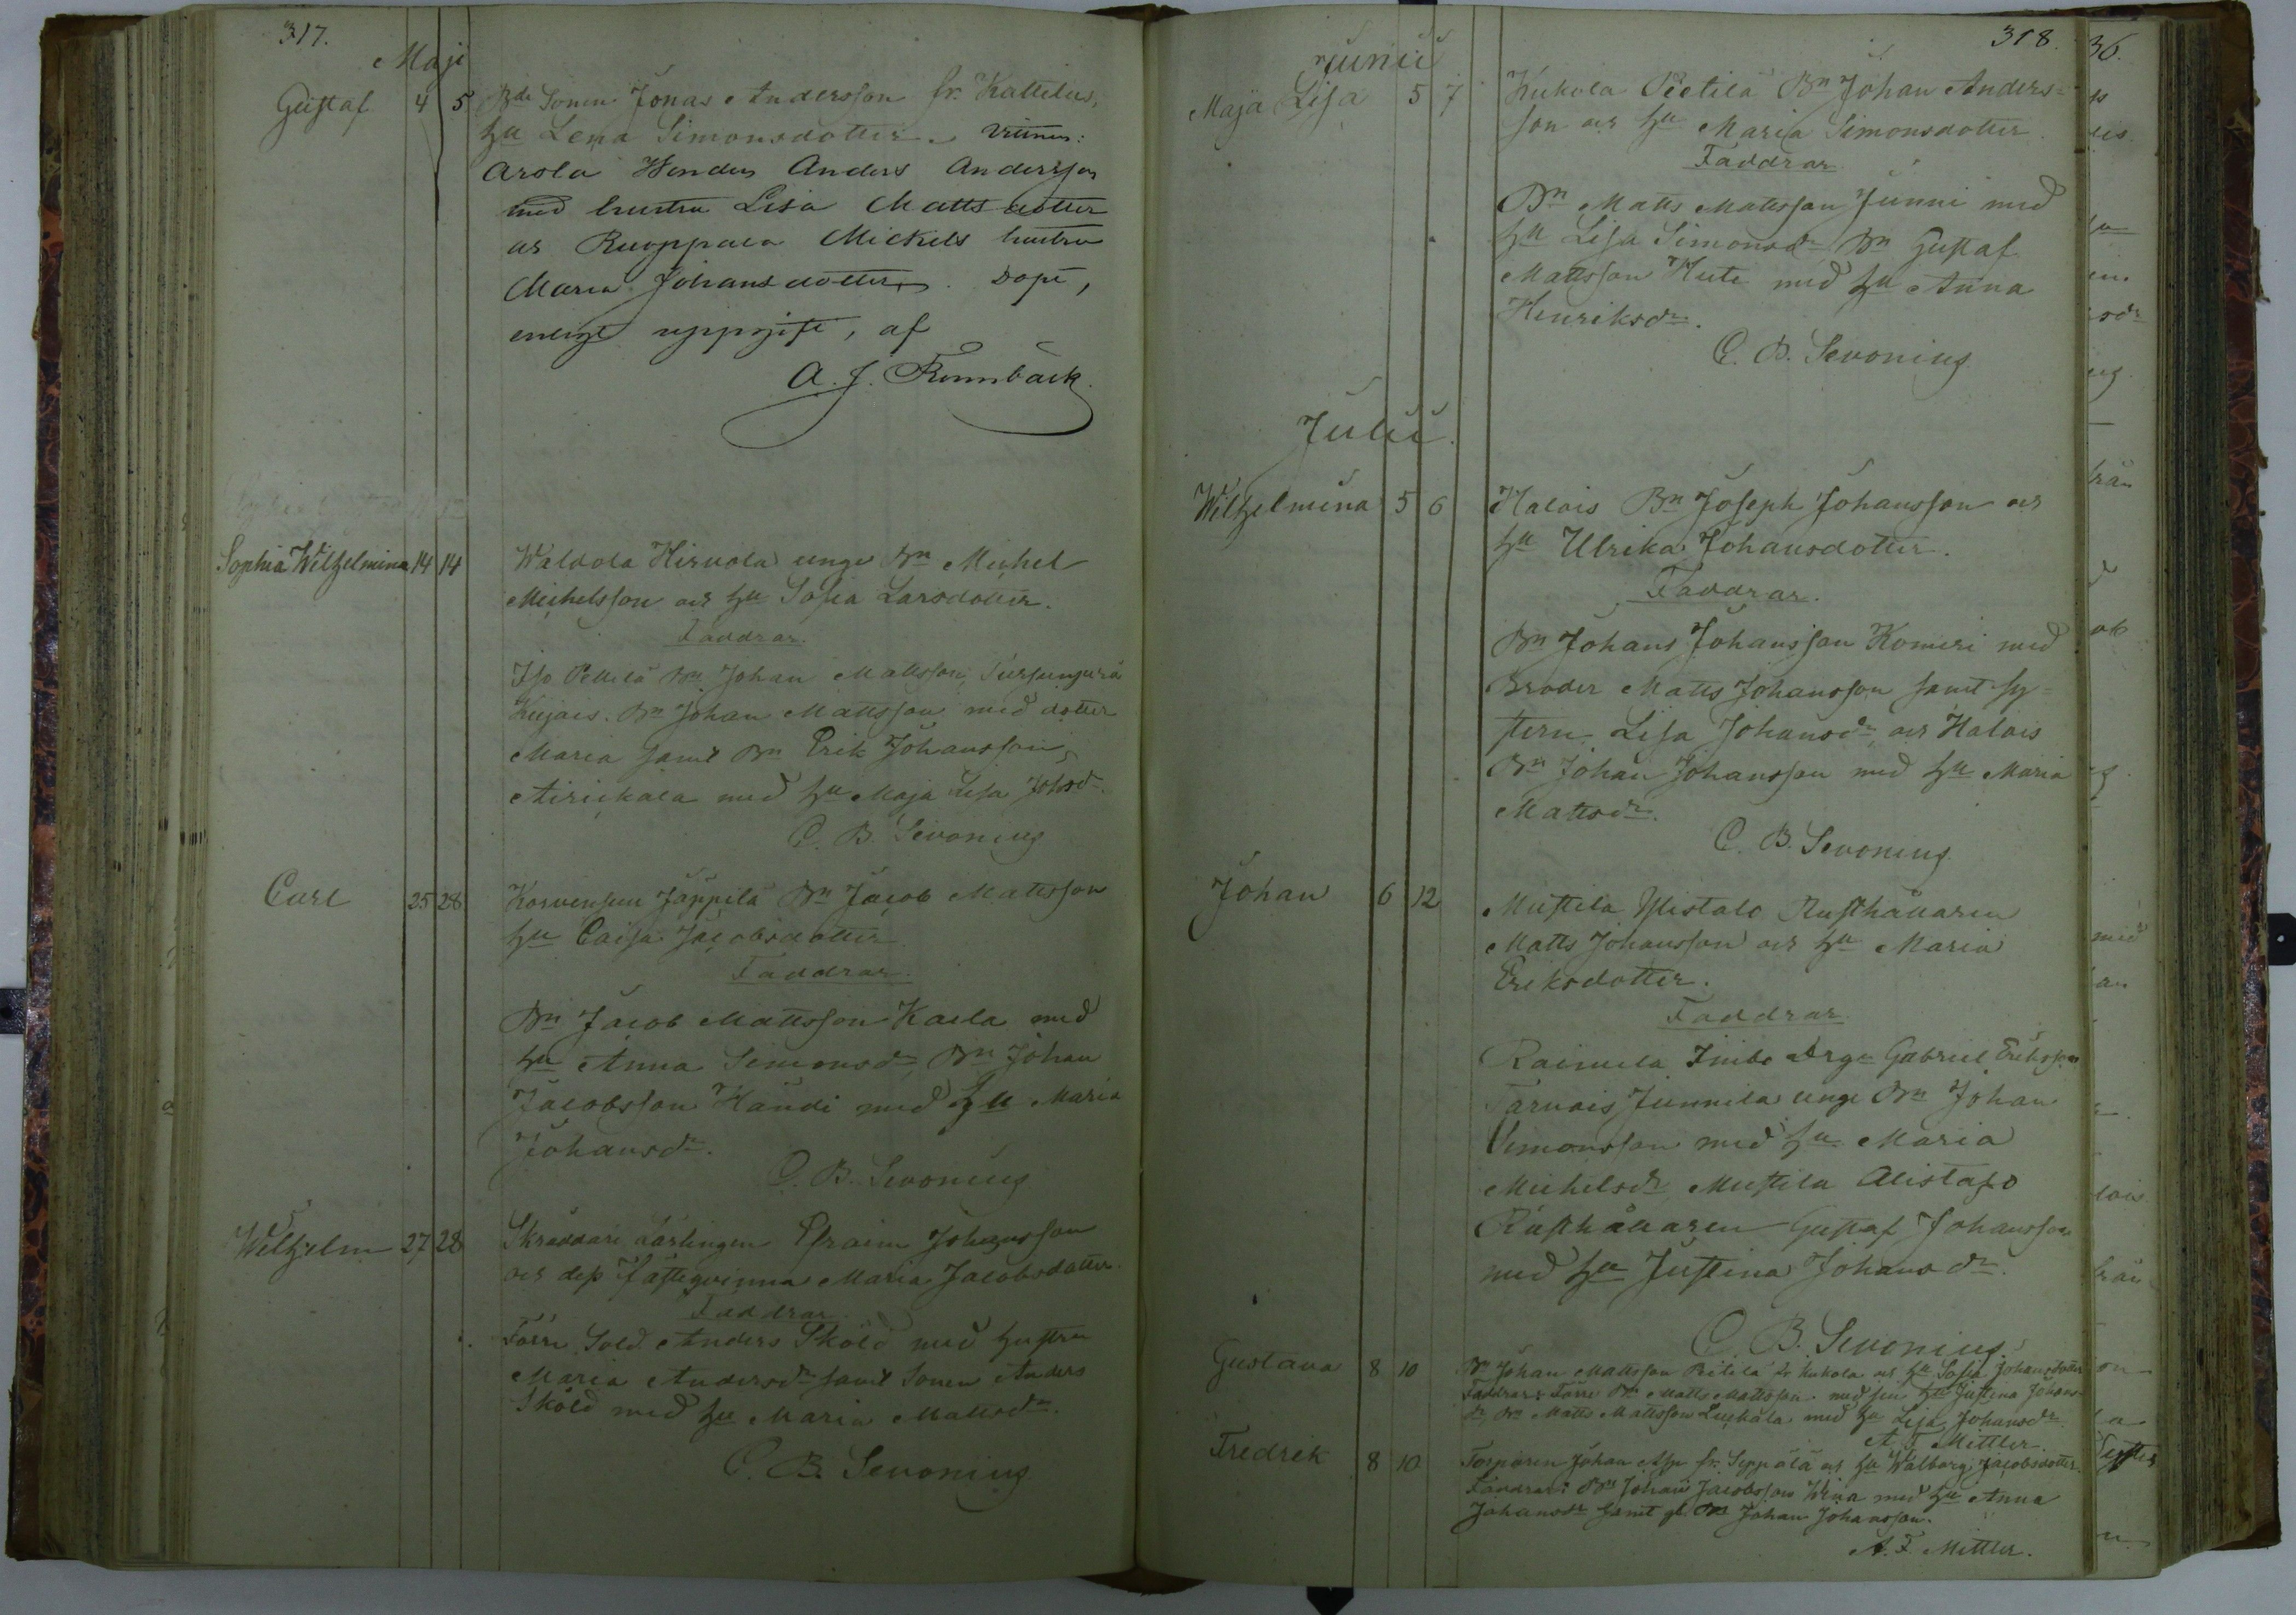 317.
Maji
Gustaf 4 5 Bde Sonen Jonas Andersson fr. Kattelus,
hu Lena Simonsdotter. Vittnen:
Arola Hendus Anders Andersson
med hustru Lisa Mattsdotter
os Ruoppala Mickels hustru
Maria Johansdotter. Döpt,
enligt uppgift, af
A. J. Rönnbäck.
Sophia Wilhelmina 14 14 Waldola Hirvola unge Bn Michel
Michelsson och hu Sofia Larsdotter.
Faddrar.
Iso Pettilä Bn Johan Mattsson,
Kujais. Bn Johan Mattsson med dotter
Maria samt Bn Erik Johansson,
Airickala med hu Maja Lisa Johsdr.
C. B. Sevonius
Carl 25 28 Korvensuu Jäppilä Bn Jacob Mattsson
hu Caisa Jacobsdotter
Faddrar.
Bn Jacob Mattsson Kaela med
hu Anna Simonsdr, Bn Johan
Jacobsson Händi med hu Maria
Johansdr.
C. B. Sevonius
Wilhelm 27 28 Skräddari Lärlingen Efraim Johansson
och dess fästeqvinna Maria Jacobsdotter.
Faddrar
Förre Sold. Anders Sköld med hustru
Maria Andersdr samt Sonen Anders
Sköld med hu Maria Mattsdr.
C. B. Sevonius
318.
Junii
Maja Lisa 5 7 Kukola Pietilä Bn Johan Anders-
son och hu Maria Simonsdotter.
Faddrar
Bn Matts Mattsson Junni med
hu Lisa Simonsdr Bn Gustaf
Mattsson Huti med hu Anna
Henriksdr.
C. B. Sevonius
Julii.
Wilhelmina 5 6 Halois Bn Joseph Johansson och
hu Ulrika Johansdotter.
Faddrar.
Bn Johans Johansson Komeri med
Broder Matts Johansson samt sy-
stern Lisa Johansdr, och Halois
Bn Johan Johansson med hu Maria
Mattsdr.
C. B. Sevonius
Johan 6 12 Mustila Ylistalo Rusthållaren
Matts Johansson och hu Maria
Eriksdotter.
Faddrar
Raimela Inibe Drgn Gabriel Eriksson
Tarvais Junnila unge Bn Johan
Simonsson med hu Maria
Michelsdr Mustila Alistalo
Rusthållaren Gustaf Johansson
med hu Justina Johansdr.
C. B. Sevonius
Gustava 8 10 Bn Johan Mattsson Pietilä fr. Kukola och hu Sofia Johansdotter
Faddrar: Förre Bn Matts Mattsson med sin hu Justina Johans-
dr Bn Matts Mattsson Luckala med hu Lisa Johansdr
A. F. Mittler
Fredrik 8 10 Torparen Johan Asp fr. Seppälä och hu Walborg Jacobsdotter.
Faddrar: Bn Johan Jacobsson Wina med hu Anna
Johansdr samt gl. Bn Johan Johansson.
A. F. Mittler.